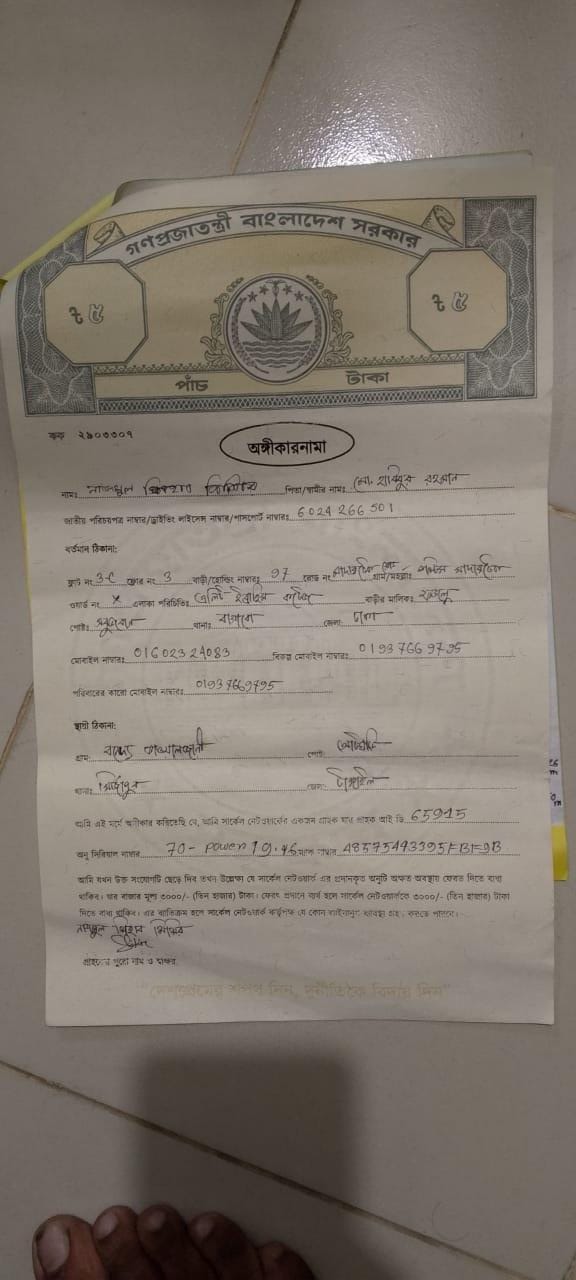 গণপ্রজাতন্ত্রী বাংলাদেশ সরকার
৳ ৫ ৳ ৫
পাঁচ টাকা
কক ২৯০৩৩০৭
অঙ্গীকারনামা
নামঃ পিতা/স্বামীর নামঃ মো. হাবিবুর রহমান
জাতীয় পরিচয়পত্র নাম্বার/ড্রাইভিং লাইসেন্স নাম্বার/পাসপোর্ট নাম্বারঃ 6024266501
বর্তমান ঠিকানা:
ফ্ল্যাট নং 3-C ফ্লোর নং 3 বাড়ী/হোল্ডিং নাম্বারঃ 97 রোড নং গ্রাম/মহল্লাঃ
ওয়ার্ড নং X এলাকা পরিচিতিঃ বাড়ীর মালিকঃ
পোষ্টঃ থানাঃ জেলাঃ ঢাকা
মোবাইল নাম্বারঃ 01602324083 বিকল্প মোবাইল নাম্বারঃ 01937669795
পরিবারের কারো মোবাইল নাম্বারঃ 01937669795
স্থায়ী ঠিকানা:
গ্রাম: পোষ্ট:
থানাঃ মির্জাপুর জেলা: টাঙ্গাইল
আমি এই মর্মে অঙ্গীকার করিতেছি যে, আমি সার্কেল নেটওয়ার্কের একজন গ্রাহক যার গ্রাহক আই ডি 65915
অনু সিরিয়াল নাম্বার 70- Power 19.46 ম্যাক নাম্বার 48575443395FBF9B
আমি যখন উক্ত সংযোগটি ছেড়ে দিব তখন উল্লেক্ষ্য যে সার্কেল নেটওয়ার্ক এর প্রদানকৃত অনুটি অক্ষত অবস্থায় ফেরত দিতে বাধ্য
থাকিব। যার বাজার মূল্য ৩০০০/- (তিন হাজার) টাকা। ফেরৎ প্রদানে ব্যর্থ হলে সার্কেল নেটওয়ার্ককে ৩০০০/- (তিন হাজার) টাকা
দিতে বাধ্য থাকিব। এর ব্যতিক্রম হলে সার্কেল নেটওয়ার্ক কর্তৃপক্ষ যে কোন আইনানুগ ব্যবস্থা গ্রহণ করতে পারবে।
গ্রাহকের পুরো নাম ও স্বাক্ষর
"দেশপ্রেমের শপথ নিন, দুর্নীতিকে বিদায় দিন"